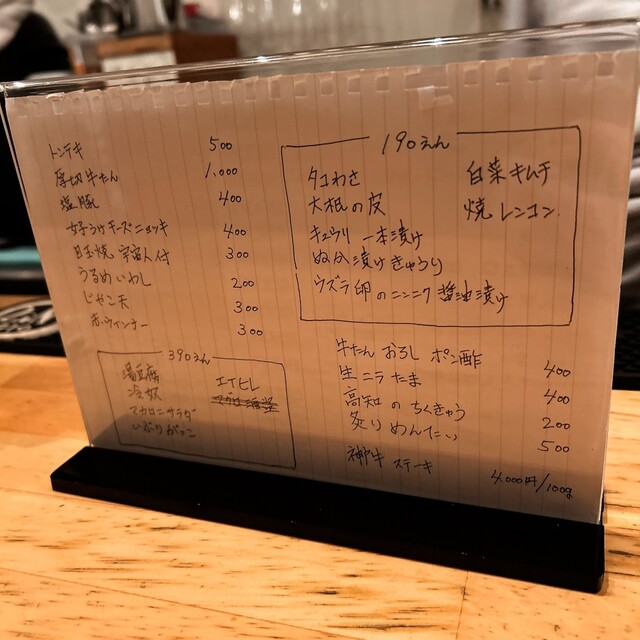 トンテキ 500
厚切牛たん 1.000
塩豚 400
女子うけチーズニョッキ 400
目玉焼 宇宙人付 300
うるめいわし 200
じゃこ天 300
赤ウィンナー 300
390えん
湯豆腐 エイヒレ
冷奴
マカロニサラダ
いぶりがっこ
190えん
タコわさ 白菜キムチ
大根の皮 焼レンコン
キュウリ 一本漬け
ぬか漬けきゅうり
ウズラ卵のニンニク醤油漬け
牛たん おろし ポン酢 400
生ニラたま 400
高知のちくきゅう 200
炙りめんたい 500
神戸牛 ステーキ 4.000円/100g